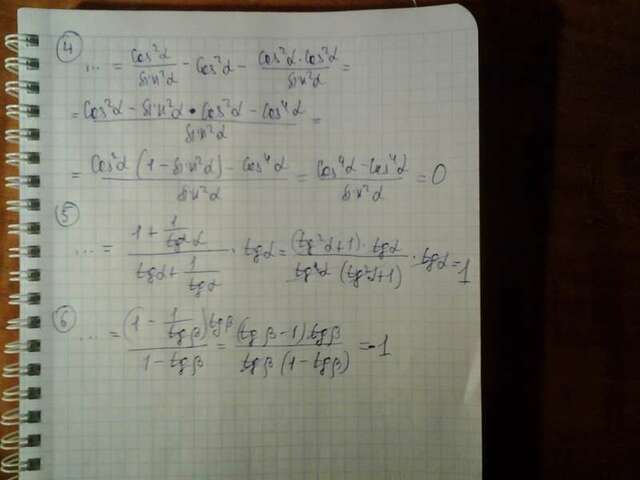 ④
... = cos²α/sin²α - cos²α - cos²α·cos²α/sin²α =
= (cos²α - sin²α • cos²α - cos⁴α)/sin²α =
= (cos²α (1 - sin²α) - cos⁴α)/sin²α = (cos⁴α - cos⁴α)/sin²α = 0
⑤
... = (1 + 1/tg²α)/(tgα + 1/tgα) · tgα = (tg²α + 1) · tgα/(tg²α (tg²α + 1)) · tgα = 1
⑥
... = (1 - 1/tgβ) tgβ/(1 - tgβ) = (tgβ - 1) tgβ/(tgβ (1 - tgβ)) = -1